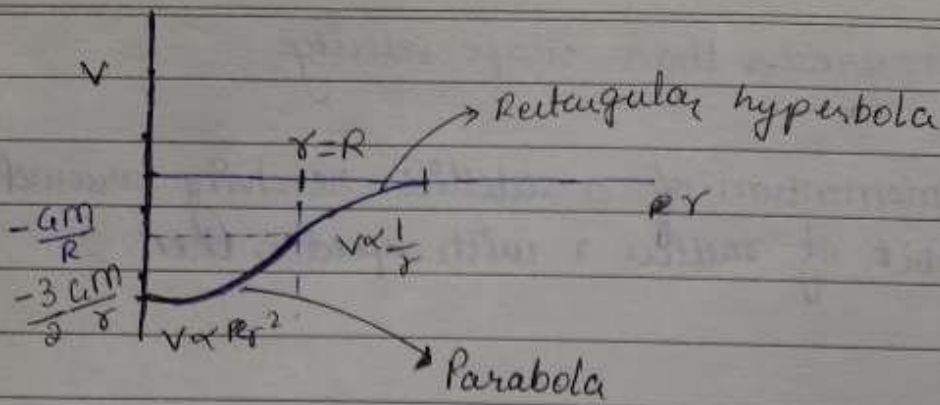 V
Rectangular hyperbola
r=R
r
-GM/R
V∝1/r
-3/2 GM/r
V∝r²
Parabola